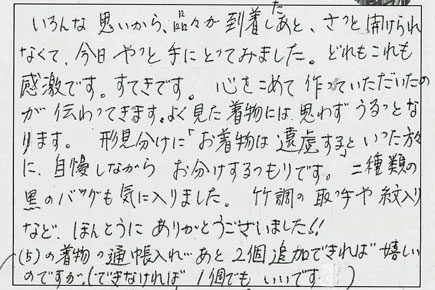 いろんな思いから、品々が到着したあと、さっと開けられ
なくて、今日やっと手にとってみました。どれもこれも
感激です。すてきです。心をこめて作っていただいたの
が伝わってきます。よく見た着物には思わずうるっとな
ります。形見分けに「お着物は遠慮する」といった方
に、自慢しながらお分けするつもりです。二種類の
黒のバッグも気に入りました。竹調の取っ手や紋入り
など、ほんとうにありがとうございました!!
(5)の着物の通帳入れあと2個追加できれば嬉しい
のですが。(できなければ1個でもいいです)